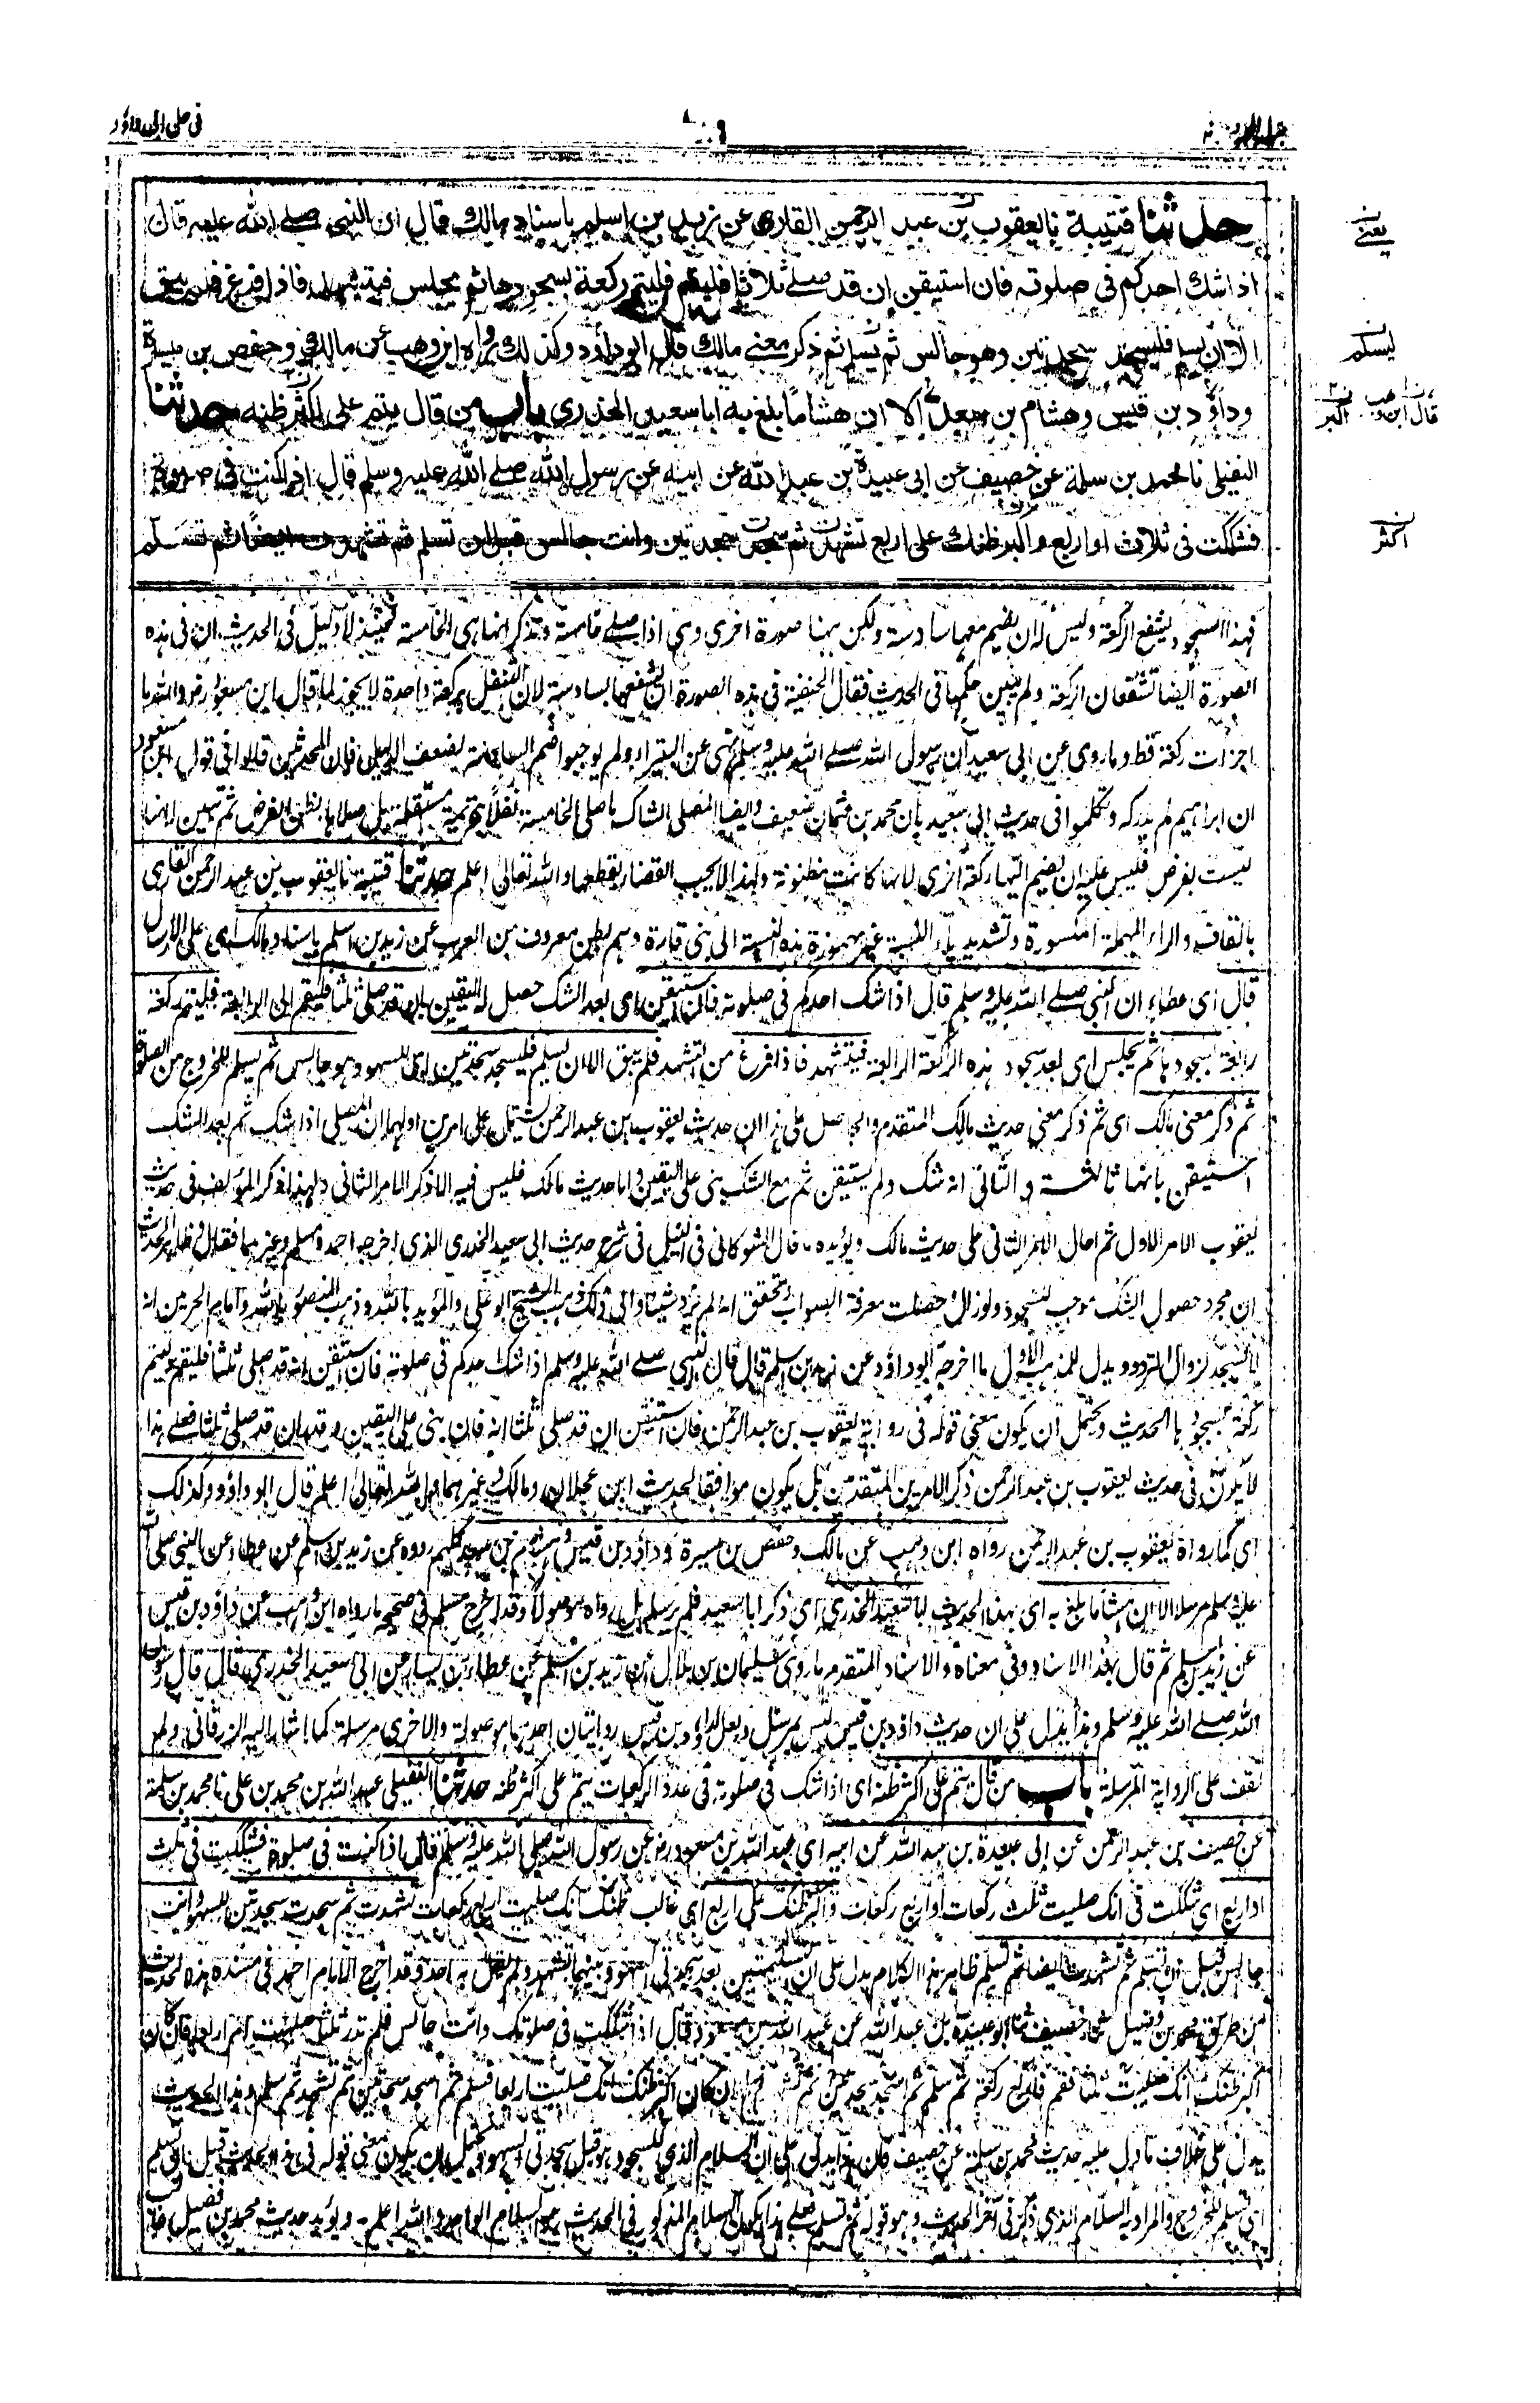 فی حل ابی داؤد
حدثنا قتيبة نا يعقوب بن عبد الرحمن القاری عن زيد بن اسلم باسناد مالك قال ان النبی صلے الله عليه قال
اذا شك احدكم فی صلوته فان استيقن ان قد صلے ثلاثا فليقم فليتم ركعة بسجودها ثم يجلس فيتشهد فاذا فرغ فلم يبق
الا ان يسلم فليسجد سجدتين وهو جالس ثم يسلم ثم ذكر معنے مالك قال ابو داؤد وكذلك رواه ابن وهب عن مالك وحفص بن ميسرة
وداؤد بن قيس وهشام بن سعد الا ان هشاما بلغ به ابا سعيد الخدری باب من قال يتم علی اكثر ظنه حدثنا
النفيلی نا محمد بن سلمة عن خصيف عن ابی عبيدة بن عبد الله عن ابيه عن رسول الله صلے الله عليه وسلم قال اذا كنت فی صلوة
فشككت فی ثلاث او اربع واكبر ظنك علی اربع تشهدت ثم سجدت سجدتين وانت جالس قبل ان تسلم ثم تشهدت ايضا ثم تسلم
يعنے
يسلم
قال ابن وهب
اكبر
اكثر
فهذا السجود يشفع الركعة وليس له ان يضيم معها سادسة ولكن ههنا صورة اخری وهی اذا صلے خامسة وتذكر انها هی الخامسة فحينئذ لا دليل فی الحديث ان فی هذه
الصورة ايضا تشفعان الركعة ولم يتبين حكمها فی الحديث فقال الحنفية فی هذه الصورة ان يشفعها بسادسة لان التنفل بركعة واحدة لا يجوز لما قال ابن مسعود رض والله ما
اجزأت ركعة قط وما روی عن ابی سعيد ان رسول الله صلے الله عليه وسلم نهی عن البتيراء ولم يوجبوا ضم السادسة لضعف الدليل فان المحدثين قالوا فی قول ابن مسعود
ان ابراهيم لم يدركه وتكلموا فی حديث ابی سعيد بان محمد بن عثمان ضعيف وايضا المصلی الشاك ما صلی الخامسة نفلا بتحريمة مستقلة بل صلاها بظن الفرض ثم تبين انها
ليست بفرض فليس عليه ان يضيم اليها ركعة اخری لانها كانت مظنونة ولهذا لا يجب القضاء بقطعها والله تعالی اعلم حدثنا قتيبة نا يعقوب بن عبد الرحمن القاری
بالقاف والراء المهملة المكسورة وتشديد ياء النسبة غير مهموزة هذه النسبة الی بنی قارة وهم بطن معروف من العرب عن زيد بن اسلم باسناد مالك ای علی الارسال
قال ای عطاء ان النبی صلے الله عليه وسلم قال اذا شك احدكم فی صلوته فان استيقن ای بعد الشك حصل له اليقين بانه قد صلی ثلثا فليقم الی الرابعة فليتم ركعة
رابعة بسجودها ثم يجلس ای بعد سجود هذه الركعة الرابعة فيتشهد فاذا فرغ من التشهد فلم يبق الا ان يسلم فليسجد سجدتين ای للسهو وهو جالس ثم يسلم للخروج من الصلوة
ثم ذكر معنی مالك ای ثم ذكر معنی حديث مالك المتقدم والحاصل علی هذا ان حديث يعقوب بن عبد الرحمن يشتمل علی امرين اولهما ان المصلی اذا شك ثم بعد الشك
استيقن بانها ثالثة والثانی انه شك ولم يستيقن ثم مع الشك بنی علی اليقين واما حديث مالك فليس فيه الا ذكر الامر الثانی ولهذا ذكر المؤلف فی حديث
يعقوب الامر الاول ثم احال الامر الثانی علی حديث مالك ويؤيده ما قال الشوكانی فی النيل فی شرح حديث ابی سعيد الخدری الذی اخرجه احمد ومسلم وغيرهما فقال وظاهر الحديث
ان مجرد حصول الشك موجب للسجود ولو زال وحصلت معرفة الصواب وتحقق انه لم يزد شيئا والی ذلك ذهب الشيخ ابو علی والمؤيد بالله وذهب المنصور بالله وامام الحرمين انه
لا يسجد لزوال التردد ويدل للمذهب الاول ما اخرجه ابو داؤد عن زيد بن اسلم قال قال النبی صلے الله عليه وسلم اذا شك احدكم فی صلوته فان استيقن انه قد صلی ثلثا فليقم وليتم
ركعة بسجودها الحديث ويحتمل ان يكون معنی قوله فی رواية يعقوب بن عبد الرحمن فان استيقن ان قد صلی ثلثا انه فان بنی علی اليقين وقدر ان قد صلی ثلثا فعلی هذا
لا يكون فی حديث يعقوب بن عبد الرحمن ذكر الامرين المتقدمين بل يكون موافقا لحديث ابن عجلان ومالك وغيرهما والله تعالی اعلم قال ابو داؤد وكذلك
ای كما رواه يعقوب بن عبد الرحمن رواه ابن وهب عن مالك وحفص بن ميسرة وداؤد بن قيس وهشام بن سعد كلهم رووه عن زيد بن اسلم عن عطاء عن النبی صلی الله
عليه وسلم مرسلا الا ان هشاما بلغ به ای بهذا الحديث ابا سعيد الخدری ای ذكر ابا سعيد فلم يرسله بل رواه موصولا وقد اخرج مسلم فی صحيحه ما رواه ابن وهب عن داؤد بن قيس
عن زيد بن اسلم ثم قال بهذا الاسناد وفی معناه والاسناد المتقدم ما روی سليمان بن بلال عن زيد بن اسلم عن عطاء بن يسار عن ابی سعيد الخدری قال قال رسول
الله صلے الله عليه وسلم وهذا يدل علی ان حديث داؤد بن قيس ليس بمرسل ولعل لداؤد بن قيس روايتان احدهما موصولة والاخری مرسلة كما اشار اليه الزرقانی ولم
نقف علی الرواية المرسلة باب من قال يتم علی اكثر ظنه ای اذا شك فی صلوته فی عدد الركعات يتم علی اكثر ظنه حدثنا النفيلی عبد الله بن محمد بن علی نا محمد بن سلمة
عن خصيف بن عبد الرحمن عن ابی عبيدة بن عبد الله عن ابيه ای عبد الله بن مسعود رض عن رسول الله صلی الله عليه وسلم قال اذا كنت فی صلوة فشككت فی ثلث
او اربع ای شككت فی انك صليت ثلث ركعات او اربع ركعات واكبر ظنك علی اربع ای غالب ظنك انك صليت اربع ركعات تشهدت ثم سجدت سجدتين للسهو وانت
جالس قبل ان تسلم ثم تشهدت ايضا ثم تسلم ظاهر هذا الكلام يدل علی ان التسليمتين بعد سجدتی السهو وبينهما تشهد ولم يقل به احد وقد اخرج الامام احمد فی مسنده هذا الحديث
من طريق محمد بن فضيل ثنا خصيف ثنا ابو عبيدة بن عبد الله عن عبد الله بن مسعود قال اذا شككت فی صلوتك وانت جالس فلم تدر ثلثا صليت ام اربعا فان كان
اكبر ظنك انك صليت ثلثا فقم فاركع ركعة ثم سلم ثم اسجد سجدتين ثم تشهد ثم سلم وان كان اكبر ظنك انك صليت اربعا فسلم ثم اسجد سجدتين ثم تشهد ثم سلم وهذا الحديث
يدل علی خلاف ما دل عليه حديث محمد بن سلمة عن خصيف فان هذا يدل علی ان السلام الذی للسجود هو قبل سجدتی السهو ويحتمل ان يكون معنی قوله فی هذا الحديث قبل ان تسلم
ای تسلم للخروج والمراد به السلام الذی ذكر فی آخر الحديث وهو قوله ثم تسلم فعلی هذا يكون السلام المذكور فی الحديث هو السلام الواحد والله اعلم - ويؤيد حديث محمد بن فضيل